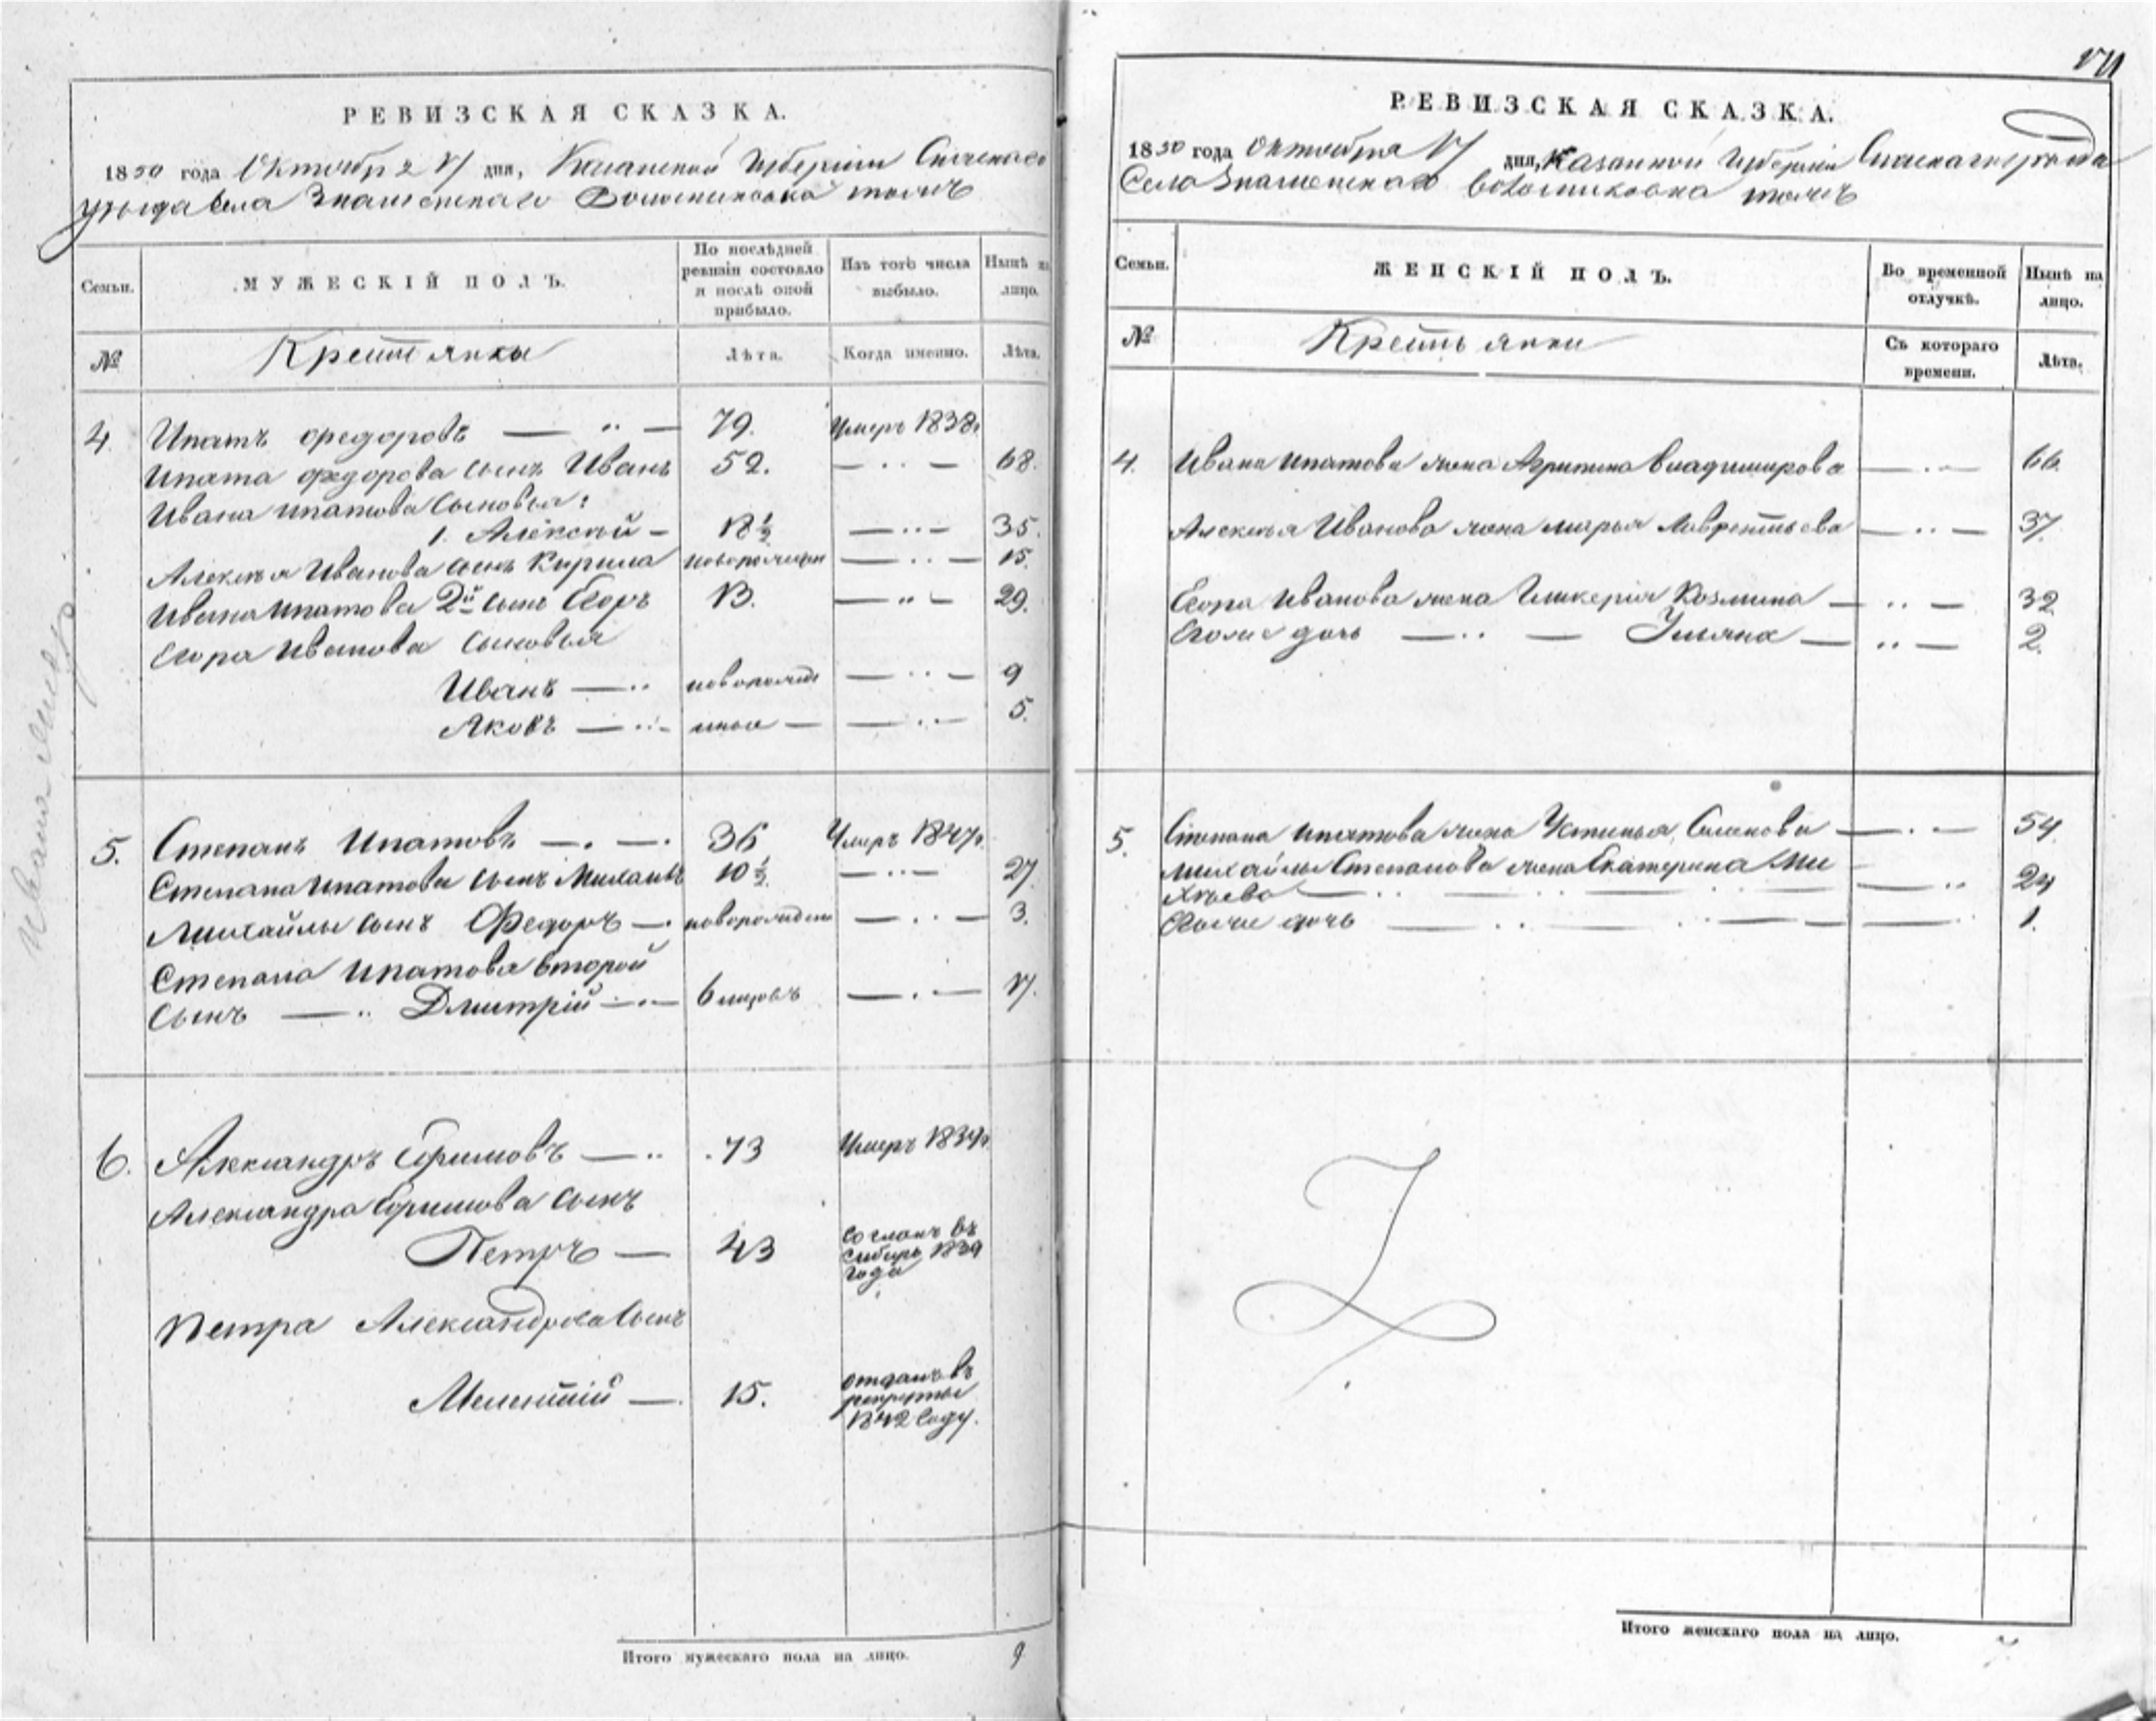 РЕВИЗСКАЯ СКАЗКА.
1850 года Октября дня, Казанской Губернiи Спаскаго
уѣзда Села Знаменскаго тожъ
Семьи.
МУЖЕСКIЙ ПОЛЪ.
По послѣдней
ревизiи состояло
и послѣ оной
прибыло.
Изъ того числа
выбыло.
Нынѣ на
лицо.
№
Крестьяны
Лѣта.
Когда именно.
Лѣта.
4 Ипатъ Федоровъ — 79. Умеръ 1838г.
Ипата Федорова сынъ Иванъ 52. — 68.
Ивана Ипатова сыновья:
1. Алексѣй — 18½ — 35.
Алексѣя Иванова сынъ Кирила новорожден — 15.
Ивана Ипатова 2й сынъ Егоръ 13. — 29.
Егора Иванова сыновья
Иванъ — новорожде — 9
Яковъ — нные — 5.
5. Степанъ Ипатовъ — 36 Умеръ 1847г.
Степана Ипатова сынъ Михаилъ 10½ — 27.
Михайлы сынъ Федоръ — новорожден — 3.
Степана Ипатова второй
сынъ — Дмитрiй — 6 —
6. Александръ Ефимовъ — 73 Умеръ
Александра Ефимова сынъ
Петръ — 43 сосланъ въ
сибирь 1839
года
Петра Александрова сынъ
Мелентiй — 15. отданъ въ
рекруты
1842 году.
Итого мужескаго пола на лицо. 9
РЕВИЗСКАЯ СКАЗКА.
1850 года Октября дня, Казанской Губернiи Спаскаго уѣзда
Села Знаменскаго тожъ
Семьи.
ЖЕНСКIЙ ПОЛЪ.
Во временной
отлучкѣ.
Нынѣ на
лицо.
№
Крестьянки
Съ котораго
времени.
Лѣта.
4. Ивана Ипатова жена Агрипина Владимирова — 66.
Алексѣя Иванова жена Марья Лаврентьева — 37.
Егора Иванова жена Гликерiя Козмина — 32
Егоже дочь — Ульяна — 2.
5. Степана Ипатова жена Устинья Семенова — 54.
Михайлы Степанова жена Екатерина Ми
хѣева — 24
Егоже дочь — 1.
Итого женскаго пола на лицо. 7